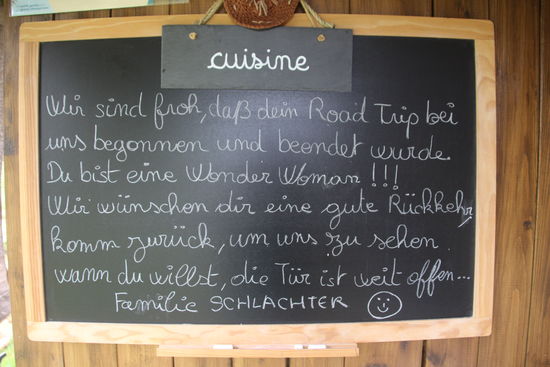 cuisine
Wir sind froh, daß dein Road Trip bei
uns begonnen und beendet wurde.
Du bist eine Wonder Woman !!!
Wir wünschen dir eine gute Rückkehr
komm zurück, um uns zu sehen.
wann du willst, die Tür ist weit offen...
Familie SCHLACHTER